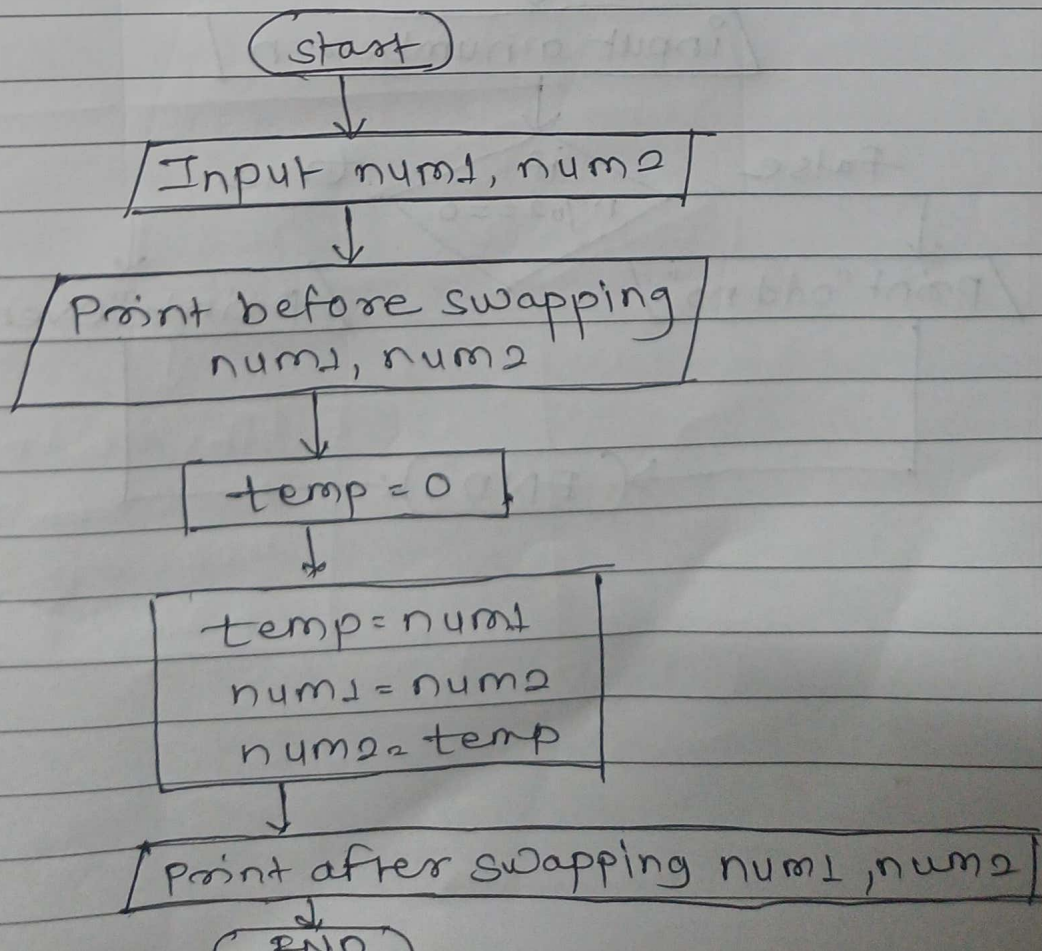 Start
Input num1, num2
Print before swapping
num1, num2
temp = 0
temp = num1
num1 = num2
num2 = temp
Print after swapping num1, num2
END